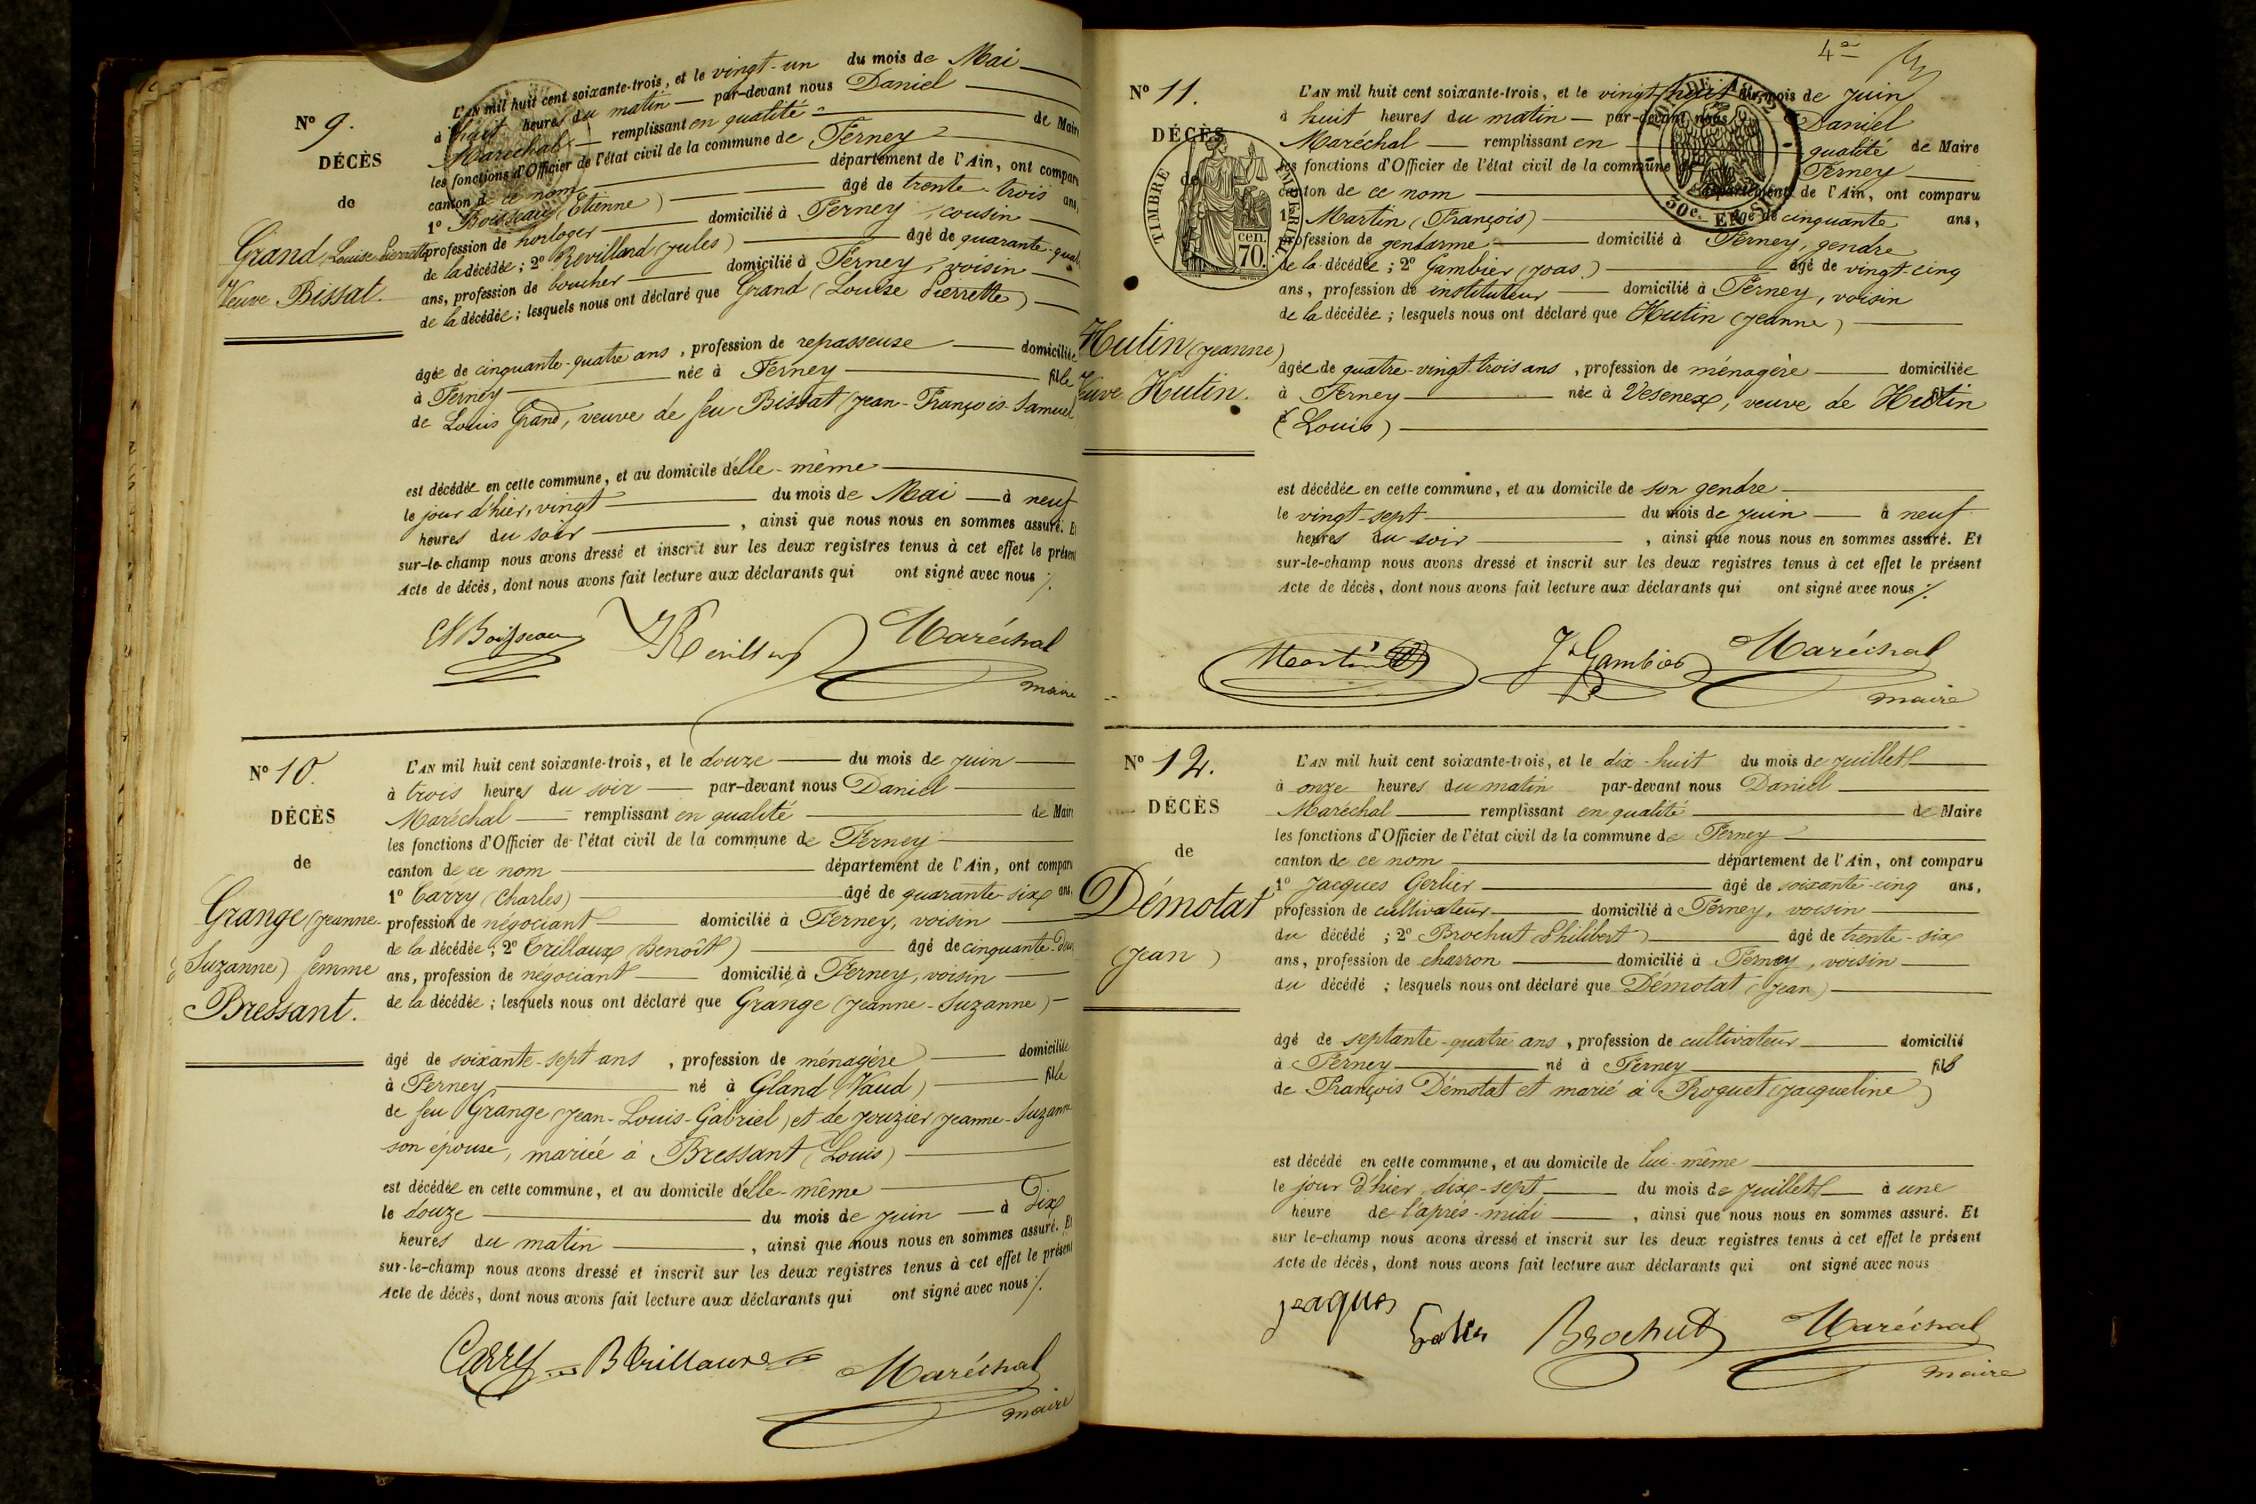 N° 9.
DÉCÈS
de
Grand (Louise Pierrette)
Veuve Bissat.
L'AN mil huit cent soixante-trois, et le vingt-un du mois de Mai
à huit heures du matin par-devant nous Daniel
Maréchal remplissant en qualité de Maire
les fonctions d'Officier de l'état civil de la commune de Ferney
canton de ce nom département de l'Ain, ont comparu
1° Boisseau (Etienne) âgé de trente-trois ans,
profession de horloger domicilié à Ferney, cousin
de la décédée; 2° Revillard (Jules) âgé de quarante-quatre
ans, profession de boucher domicilié à Ferney, voisin
de la décédée; lesquels nous ont déclaré que Grand (Louise Pierrette)
âgée de cinquante-quatre ans, profession de repasseuse domiciliée
à Ferney née à Ferney fille
de Louis Grand, veuve de feu Bissat (Jean-François-Samuel)
est décédée en cette commune, et au domicile d'elle-même
le jour d'hier, vingt du mois de Mai à neuf
heures du soir, ainsi que nous nous en sommes assuré. Et
sur-le-champ nous avons dressé et inscrit sur les deux registres tenus à cet effet le présent
Acte de décès, dont nous avons fait lecture aux déclarants qui ont signé avec nous ./.
Et Boisseau JRevillard Maréchal
maire
N° 10.
DÉCÈS
de
Grange (Jeanne-
Suzanne) femme
Bressant.
L'AN mil huit cent soixante-trois, et le douze du mois de Juin
à trois heures du soir par-devant nous Daniel
Maréchal remplissant en qualité de Maire
les fonctions d'Officier de l'état civil de la commune de Ferney
canton de ce nom département de l'Ain, ont comparu
1° Carry (Charles) âgé de quarante-six ans,
profession de négociant domicilié à Ferney, voisin
de la décédée; 2° Trillaux (Benoît) âgé de cinquante-deux
ans, profession de négociant domicilié à Ferney, voisin
de la décédée; lesquels nous ont déclaré que Grange (Jeanne-Suzanne)
âgé de soixante-sept ans, profession de ménagère domiciliée
à Ferney né à Gland (Vaud) fille
de feu Grange (Jean-Louis-Gabriel) et de Jouzier Jeanne-Suzanne
son épouse, mariée à Bressant (Louis)
est décédée en cette commune, et au domicile d'elle-même
le douze du mois de Juin à dix
heures du matin, ainsi que nous nous en sommes assuré. Et
sur-le-champ nous avons dressé et inscrit sur les deux registres tenus à cet effet le présent
Acte de décès, dont nous avons fait lecture aux déclarants qui ont signé avec nous ./.
Carry B Trillaux Maréchal
maire
4e
N° 11.
DÉCÈS
de
Hutin (Jeanne)
Veuve Hutin.
TIMBRE IMPÉRIAL
cen.
70.
30c. EN SUS
L'AN mil huit cent soixante-trois, et le vingt-huit du mois de Juin
à huit heures du matin par-devant nous Daniel
Maréchal remplissant en qualité de Maire
les fonctions d'Officier de l'état civil de la commune de Ferney
canton de ce nom département de l'Ain, ont comparu
1° Martin (François) âgé de cinquante ans,
profession de gendarme domicilié à Ferney, gendre
de la décédée; 2° Gambier (Joas.) âgé de vingt-cinq
ans, profession de instituteur domicilié à Ferney, voisin
de la décédée; lesquels nous ont déclaré que Hutin (Jeanne)
âgée de quatre-vingt-trois ans, profession de ménagère domiciliée
à Ferney née à Vesenex, veuve de Hutin
(Louis)
est décédée en cette commune, et au domicile de son gendre
le vingt-sept du mois de Juin à neuf
heures du soir, ainsi que nous nous en sommes assuré. Et
sur-le-champ nous avons dressé et inscrit sur les deux registres tenus à cet effet le présent
Acte de décès, dont nous avons fait lecture aux déclarants qui ont signé avec nous ./.
Martin J Gambier Maréchal
maire
N° 12.
DÉCÈS
de
Démotat
(Jean)
L'AN mil huit cent soixante-trois, et le dix-huit du mois de Juillet
à onze heures du matin par-devant nous Daniel
Maréchal remplissant en qualité de Maire
les fonctions d'Officier de l'état civil de la commune de Ferney
canton de ce nom département de l'Ain, ont comparu
1° Jacques Gerlier âgé de soixante-cinq ans,
profession de cultivateur domicilié à Ferney, voisin
du décédé; 2° Brochut (Philibert) âgé de trente-six
ans, profession de charron domicilié à Ferney, voisin
du décédé; lesquels nous ont déclaré que Démotat (Jean)
âgé de septante-quatre ans, profession de cultivateur domicilié
à Ferney né à Ferney fils
de François Démotat et marié à Roguet (Jacqueline)
est décédé en cette commune, et au domicile de lui-même
le jour d'hier, dix-sept du mois de Juillet à une
heure de l'après-midi, ainsi que nous nous en sommes assuré. Et
sur le-champ nous avons dressé et inscrit sur les deux registres tenus à cet effet le présent
Acte de décès, dont nous avons fait lecture aux déclarants qui ont signé avec nous
Jeaques Brochut Maréchal
maire